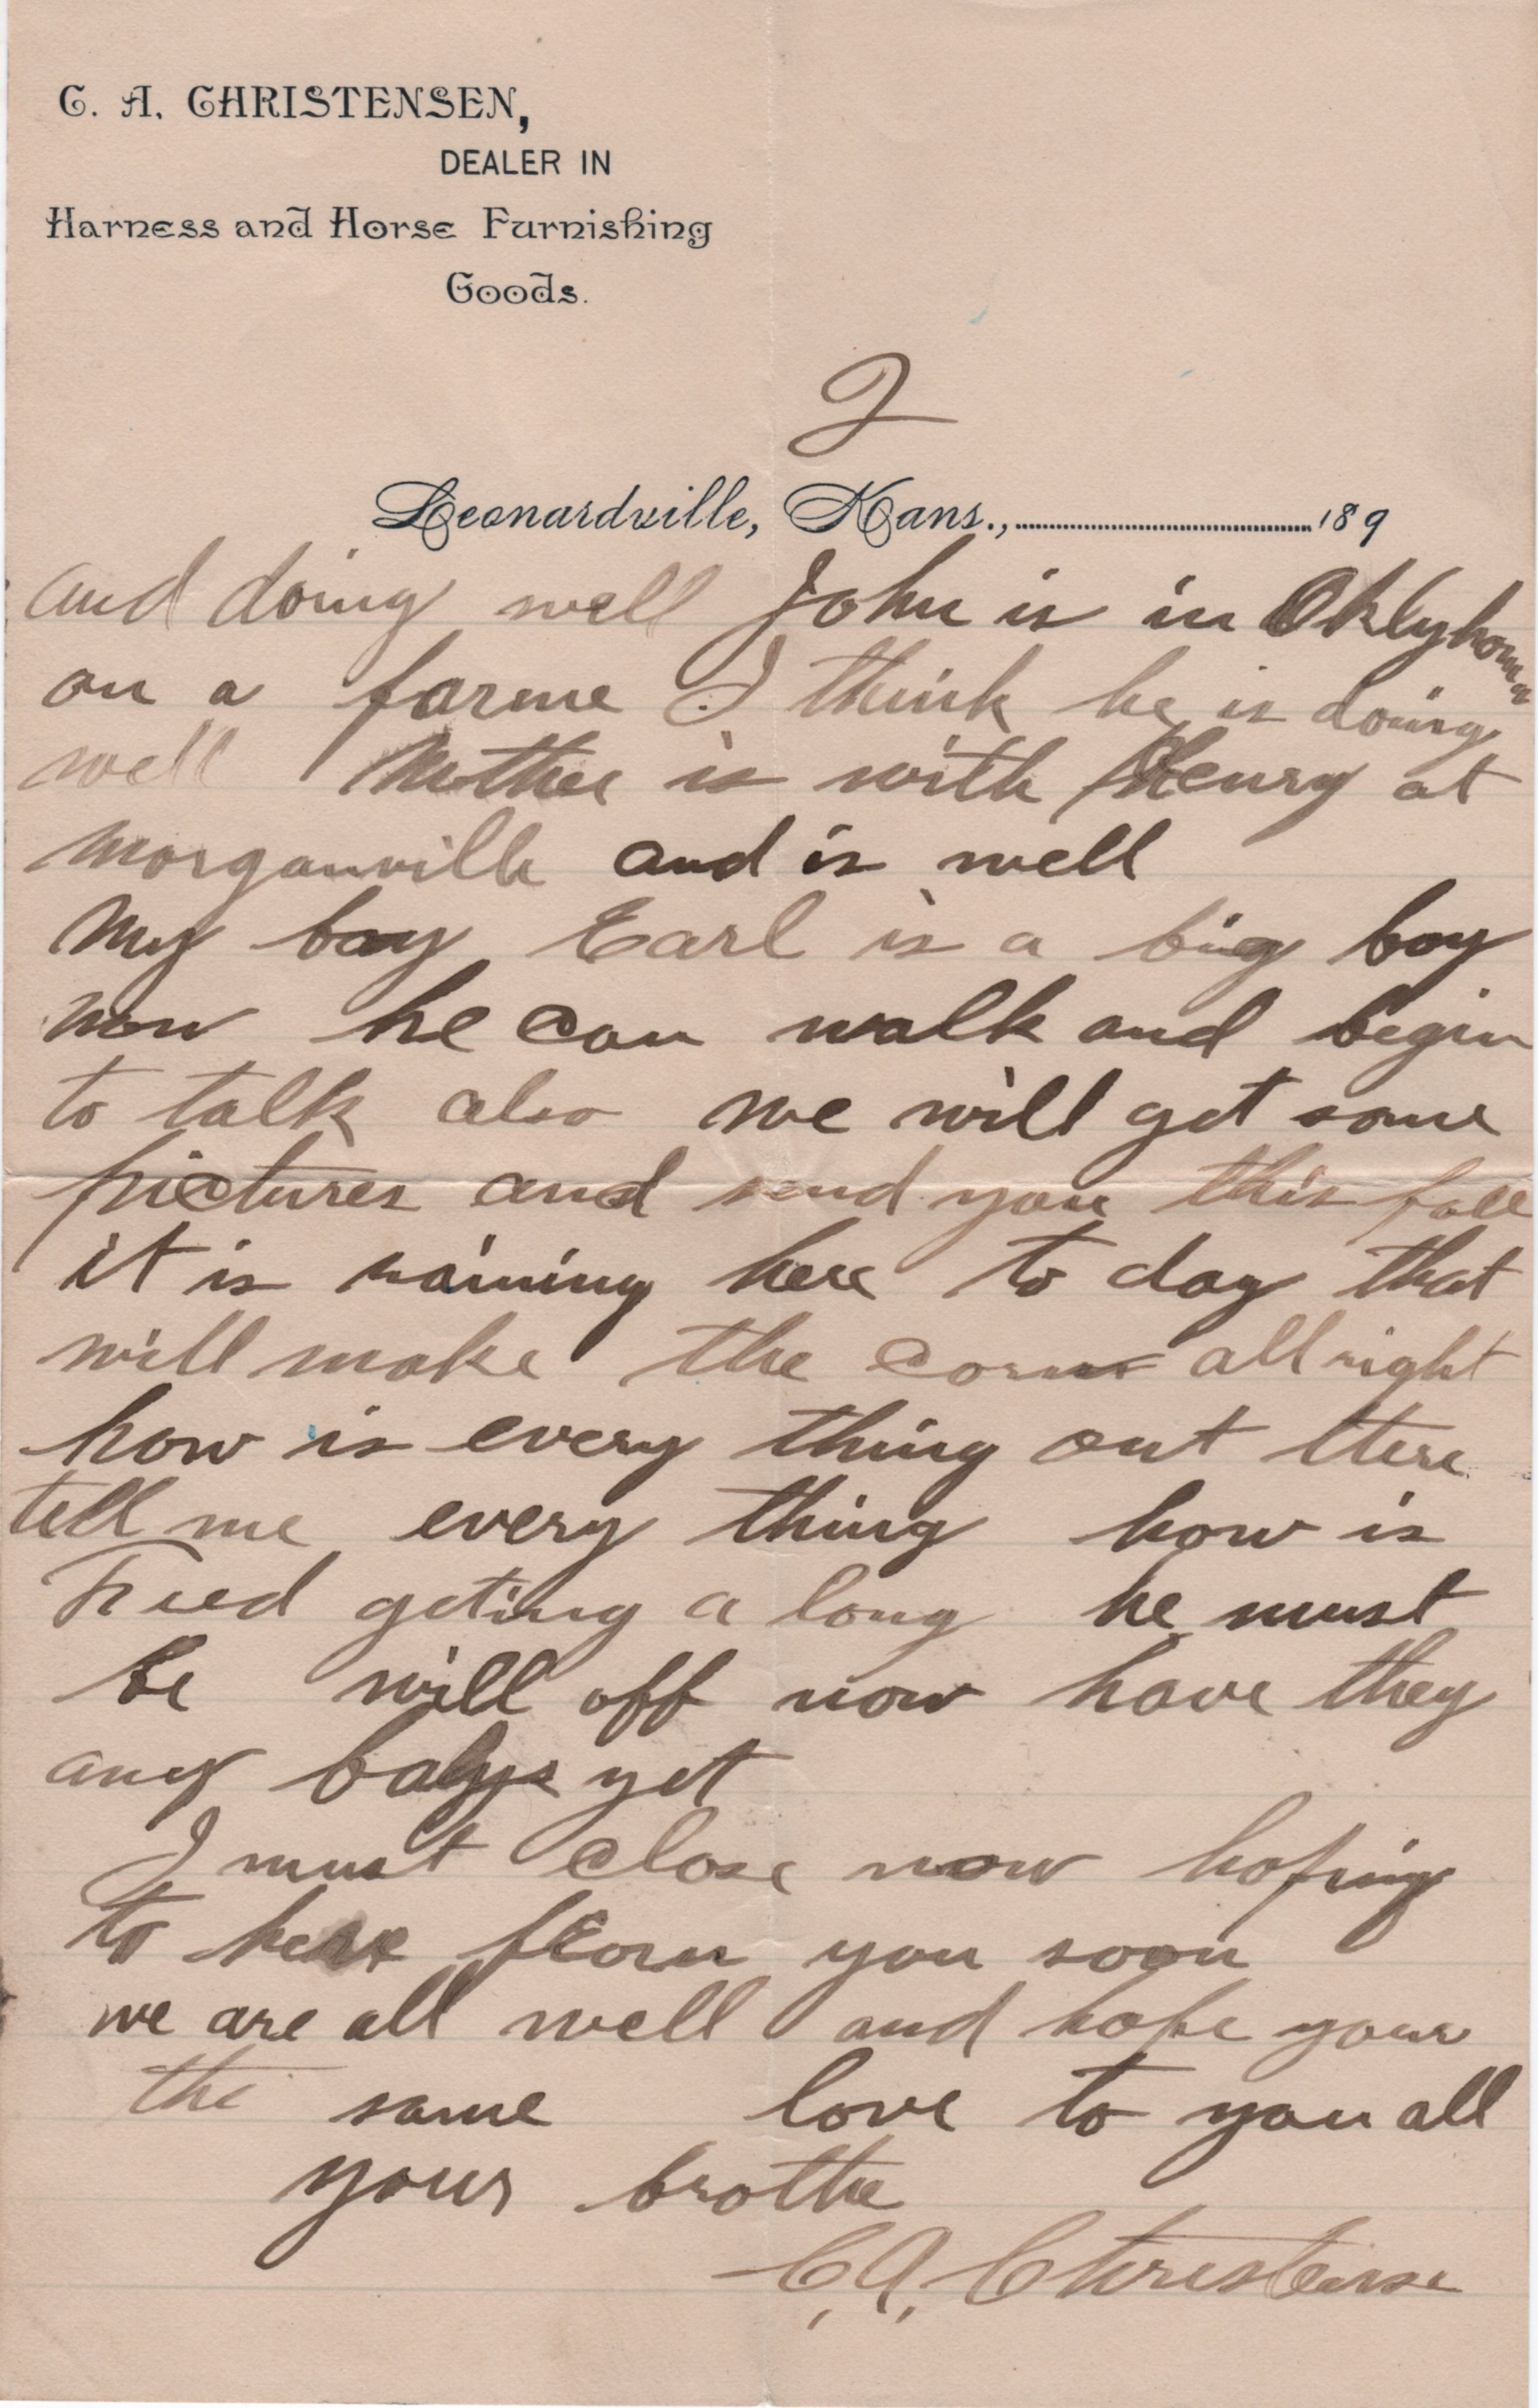 C. A. CHRISTENSEN,
DEALER IN
Harness and Horse Furnishing
Goods.
2
Leonardville, Kans., 189
and doing well John is in Oklyhoma
on a farme I think he is doing
well Mother is with Henry at
Morganville and is well
My boy Earl is a big boy
now he can walk and begin
to talk also we will get some
pictures and send you this fall
it is raining here to day that
will make the corn all right
how is every thing out there
tell me every thing how is
Fred geting a long he must
be will off now have they
any babys yet
I must close now hoping
to here from you soon
we are all well and hope your
the same love to you all
your brothe
C.A. Christense